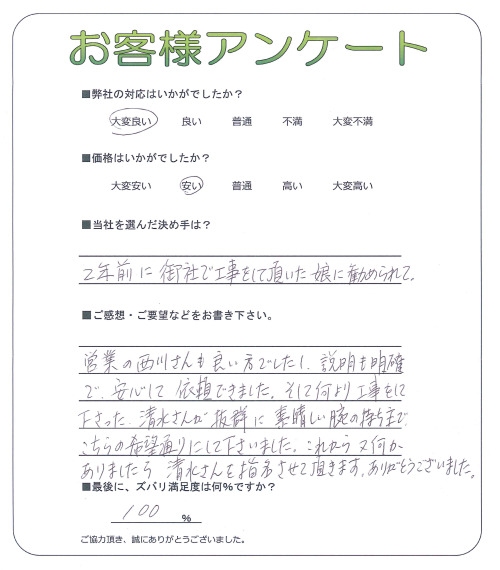 お客様アンケート
■弊社の対応はいかがでしたか？
大変良い 良い 普通 不満 大変不満
■価格はいかがでしたか？
大変安い 安い 普通 高い 大変高い
■当社を選んだ決め手は？
2年前に御社で工事をして頂いた娘に勧められて。
■ご感想・ご要望などをお書き下さい。
営業の西川さんも良い方でしたし、説明も明確
で、安心して依頼できました。そして何より工事をして
下さった、清水さんが抜群に素晴しい腕の持ち主で
こちらの希望通りにして下さいました。これから又何か
ありましたら清水さんを指名させて頂きます。ありがとうございました。
■最後に、ズバリ満足度は何％ですか？
100 %
ご協力頂き、誠にありがとうございました。